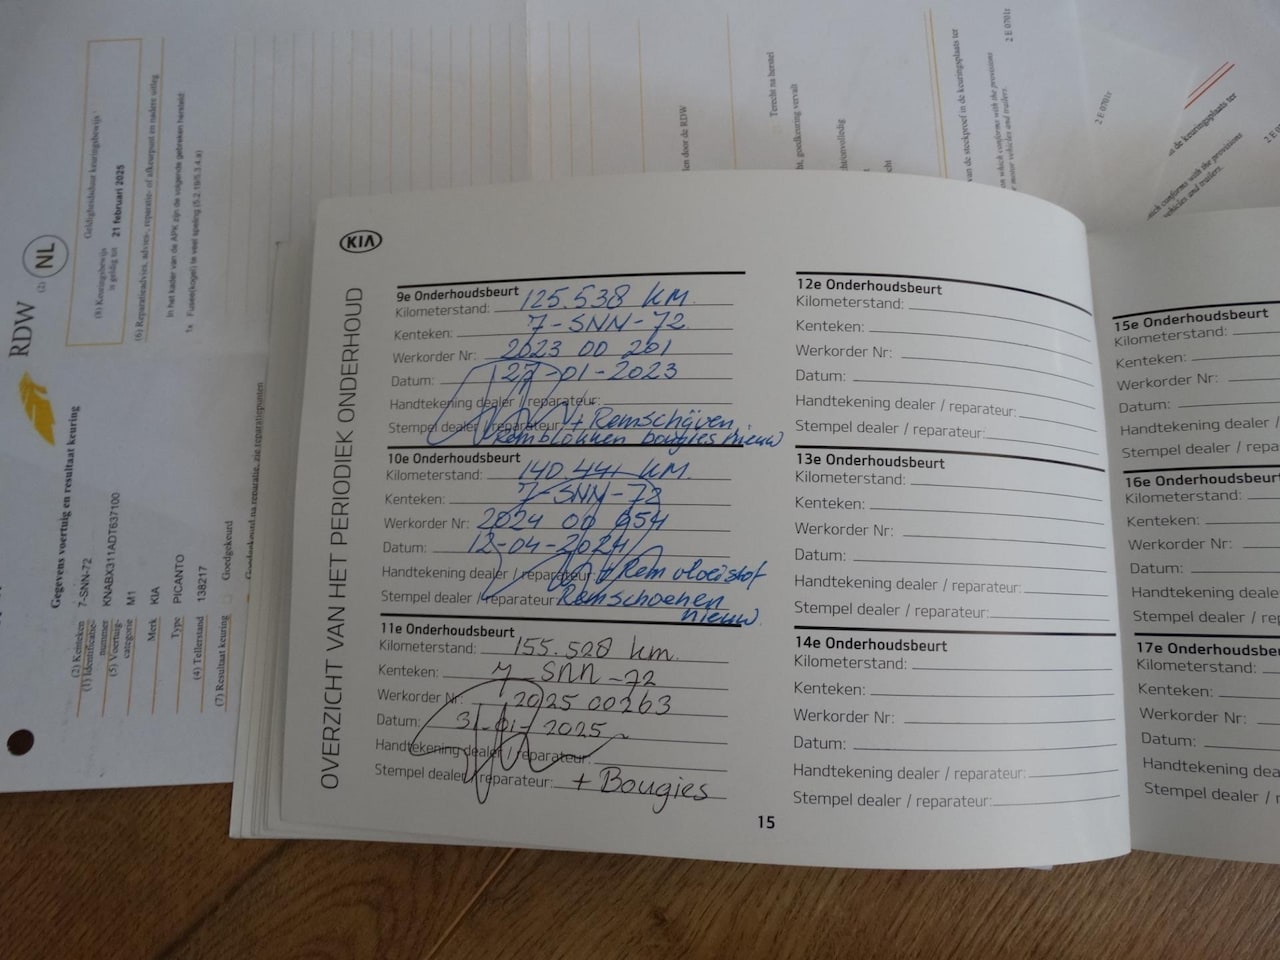 RDW
(2) NL
(8) Keuringsbewijs
is geldig tot 21 februari 2025
Geldigheidsduur keuringsbewijs
(6) Reparatieadvies, advies-, reparatie- of afkeurpunt en nadere uitleg
In het kader van de APK zijn de volgende gebreken hersteld:
1x Fusee(kogel) te veel speling (5.2.19/5.3.4.a)
Gegevens voertuig en resultaat keuring
(2) Kenteken 7-SNN-72
(1) Identificatie-
nummer KNABX311ADT637100
(5) Voertuig-
categorie M1
Merk KIA
Type PICANTO
(4) Tellerstand 138217
(7) Resultaat keuring Goedgekeurd
Terecht na herstel
goedkeuring vervalt
door de RDW
van de steekproef in de keuringsplaats ter
which conforms with the provisions
motor vehicles and trailers.
2 E 0701r
2 E 0701r
de keuringsplaats ter
conforms with the provisions
vehicles and trailers.
KIA
OVERZICHT VAN HET PERIODIEK ONDERHOUD
9e Onderhoudsbeurt
Kilometerstand: 125.538 KM.
Kenteken: 7-SNN-72
Werkorder Nr: 2023 00 201
Datum: 27-01-2023
Handtekening dealer / reparateur:
+ Remschijven
Stempel dealer / reparateur:
Remblokken bougies nieuw
10e Onderhoudsbeurt
Kilometerstand: 140.441 KM.
Kenteken: 7-SNN-72
Werkorder Nr: 2024 00 954
Datum: 12-04-2024
Handtekening dealer / reparateur: + Rem vloeistof
Stempel dealer / reparateur: Remschoenen
nieuw.
11e Onderhoudsbeurt
Kilometerstand: 155.528 km.
Kenteken: 7-SNN-72
Werkorder Nr: 2025 00263
Datum: 31-01-2025
Handtekening dealer / reparateur:
Stempel dealer / reparateur: + Bougies
12e Onderhoudsbeurt
Kilometerstand:
Kenteken:
Werkorder Nr:
Datum:
Handtekening dealer / reparateur:
Stempel dealer / reparateur:
13e Onderhoudsbeurt
Kilometerstand:
Kenteken:
Werkorder Nr:
Datum:
Handtekening dealer / reparateur:
Stempel dealer / reparateur:
14e Onderhoudsbeurt
Kilometerstand:
Kenteken:
Werkorder Nr:
Datum:
Handtekening dealer / reparateur:
Stempel dealer / reparateur:
15
15e Onderhoudsbeurt
Kilometerstand:
Kenteken:
Werkorder Nr:
Datum:
Handtekening dealer /
Stempel dealer / repa
16e Onderhoudsbeurt
Kilometerstand:
Kenteken:
Werkorder Nr:
Datum:
Handtekening deale
Stempel dealer / rep
17e Onderhoudsbe
Kilometerstand:
Kenteken:
Werkorder Nr:
Datum:
Handtekening dea
Stempel dealer / r